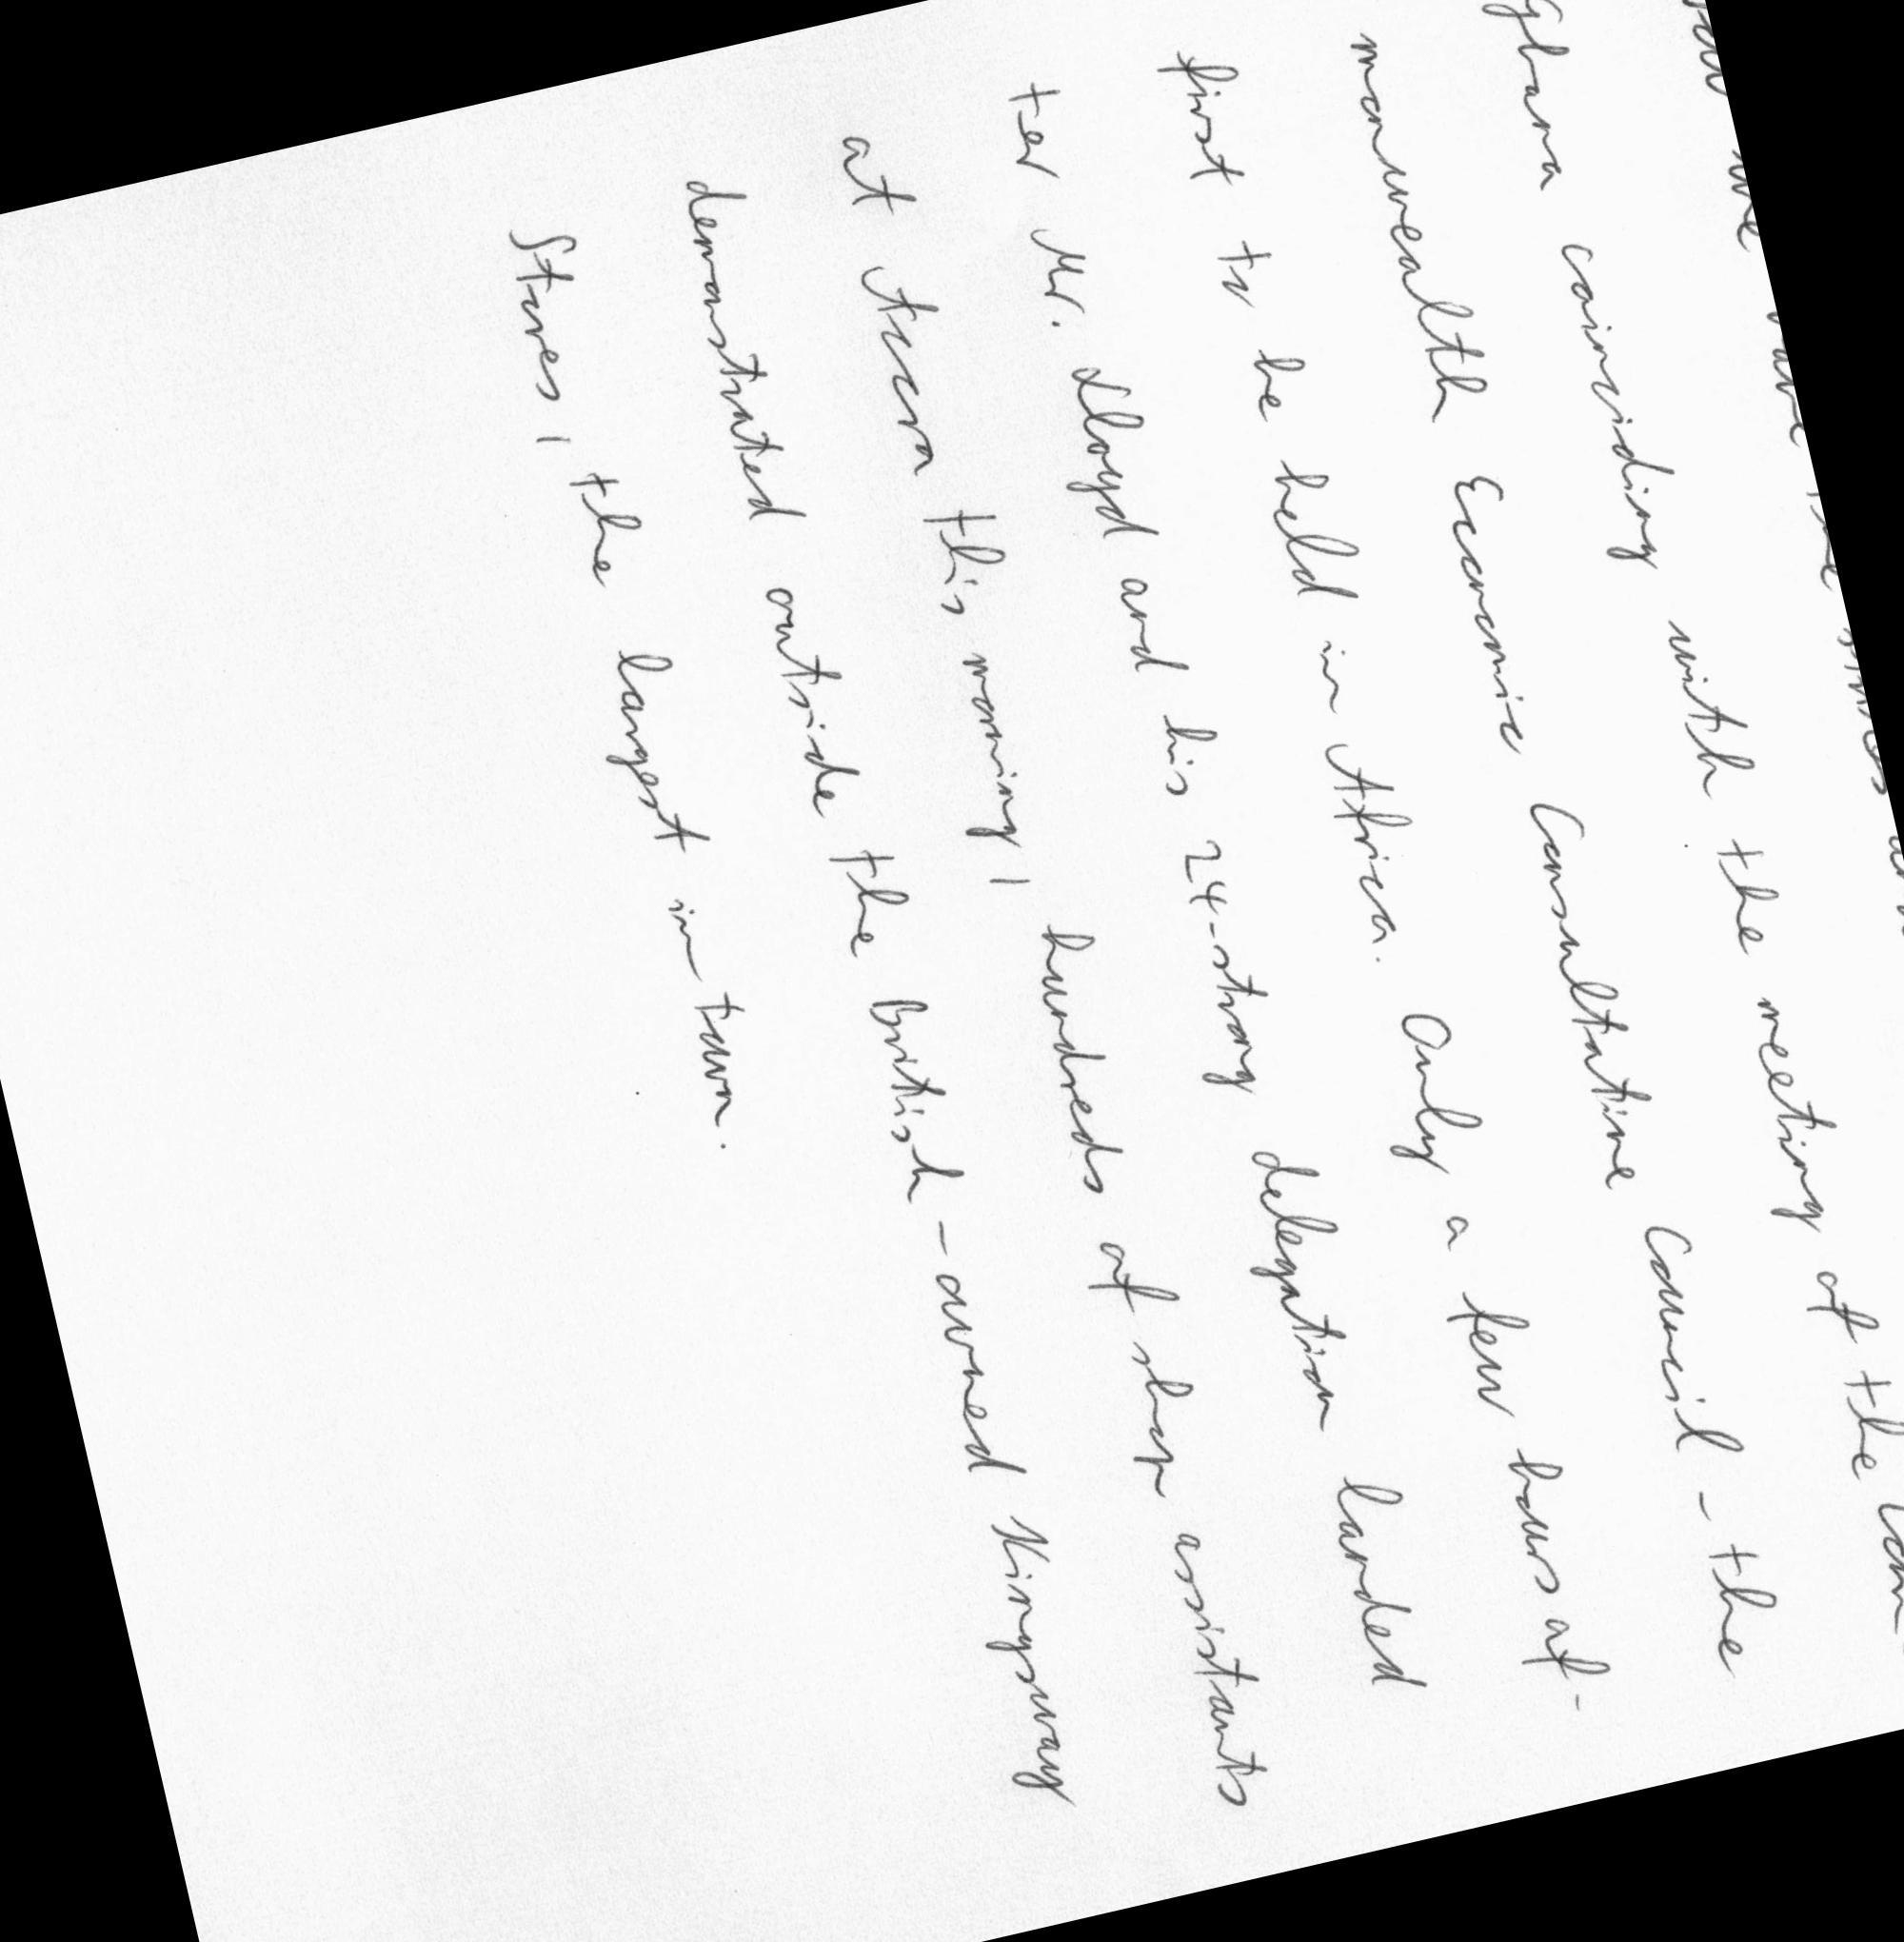 Ghana coinciding with the meeting of the Com-
monwealth Economic Consultative Council - the
first to be held in Africa. Only a few hours af-
ter Mr. Lloyd and his 24-strong delegation landed
at Accra this morning, hundreds of shop assistants
demonstrated outside the British-owned Kingsway
Stores, the largest in town.